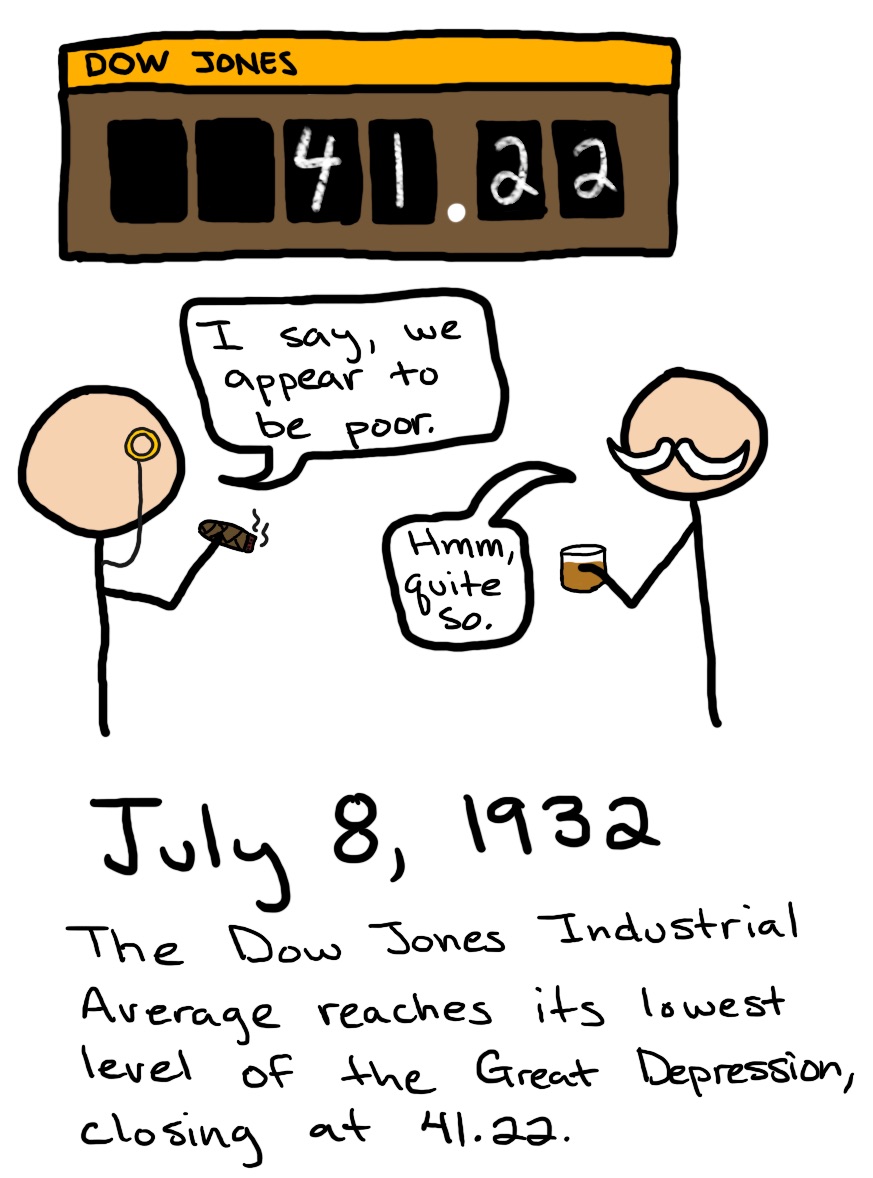 DOW JONES
41.22
I say, we
appear to
be poor.
Hmm,
quite
so.
July 8, 1932
The Dow Jones Industrial
Average reaches its lowest
level of the Great Depression,
closing at 41.22.